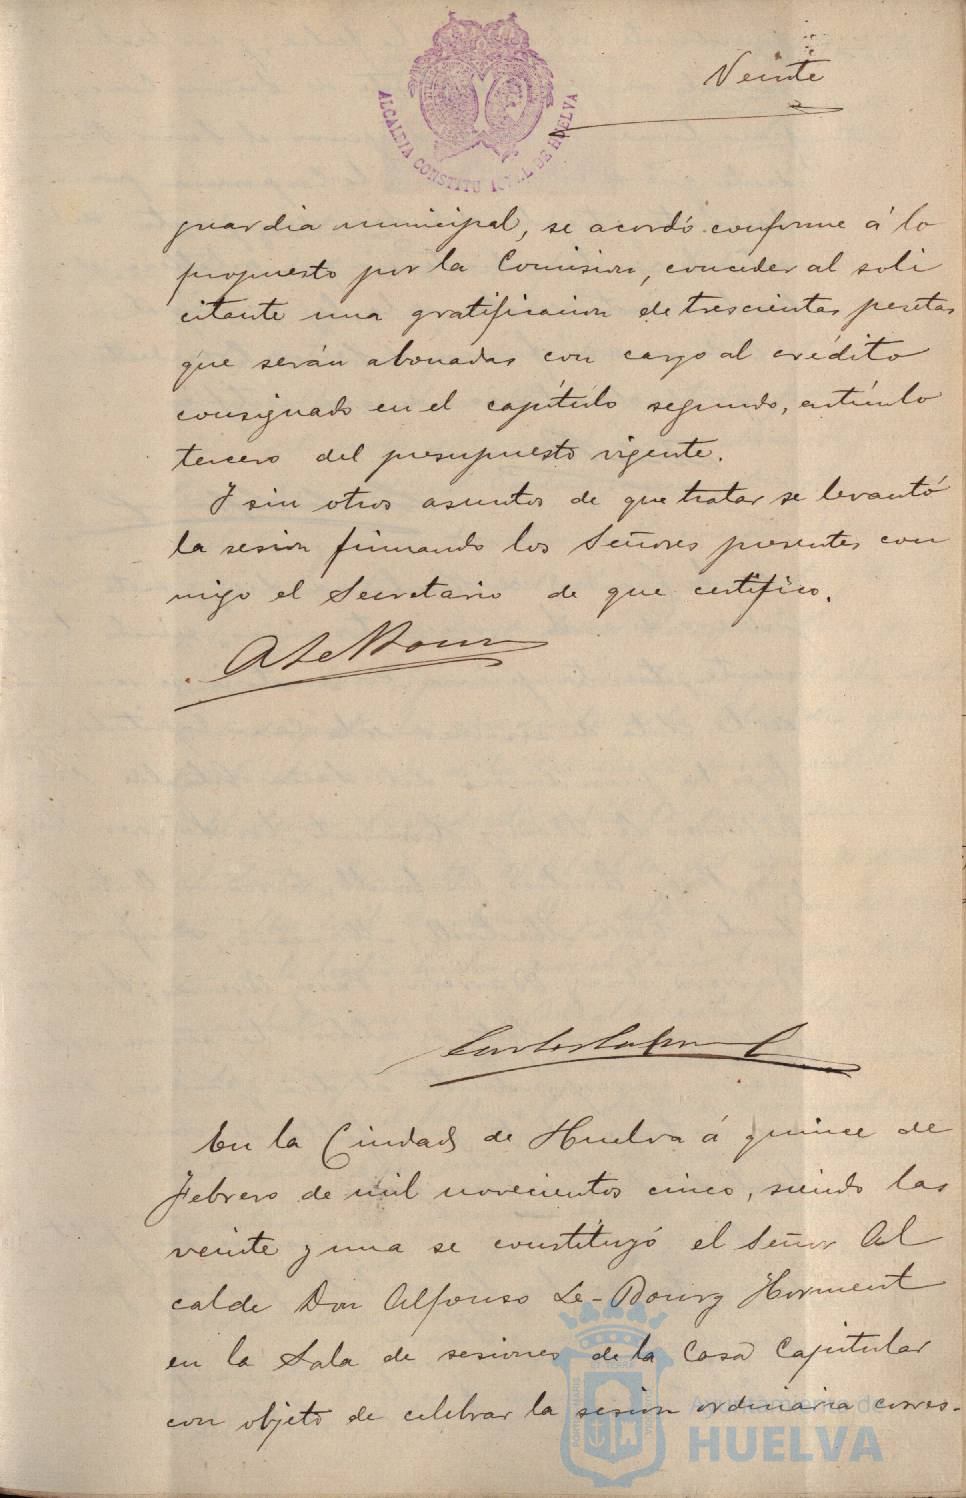 Veinte
ALCALDIA CONSTITUCIONAL DE HUELVA
guardia municipal, se acordó conforme á lo
propuesto por la Comision, conceder al soli
citante una gratificacion de trescientas pesetas
que serán abonadas con cargo al crédito
consignado en el capítulo segundo, artículo
tercero del presupuesto vigente.
Y sin otros asuntos de que tratar se levantó
la sesion firmando los Señores presentes con
migo el Secretario de que certifico.
En la Ciudad de Huelva á quince de
Febrero de mil novecientos cinco, siendo las
veinte y una se constituyó el Señor Al
calde Don Alfonso Le-Bourg Horment
en la Sala de sesiones de la Casa Capitular
con objeto de celebrar la sesion ordinaria corres-
Ayuntamiento de
HUELVA